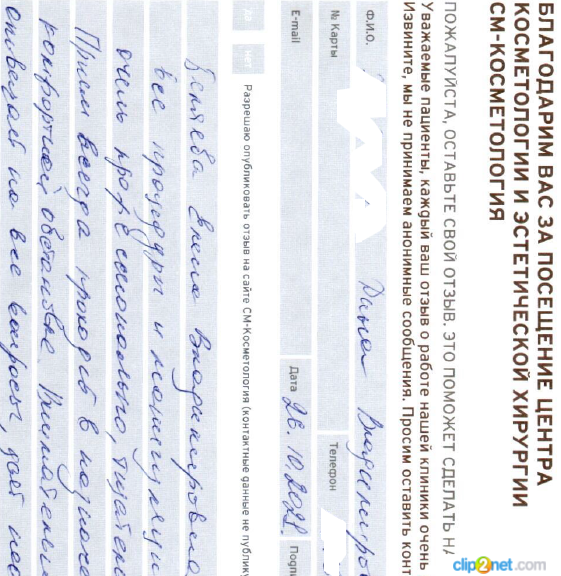 БЛАГОДАРИМ ВАС ЗА ПОСЕЩЕНИЕ ЦЕНТРА
КОСМЕТОЛОГИИ И ЭСТЕТИЧЕСКОЙ ХИРУРГИИ
СМ-КОСМЕТОЛОГИЯ
ПОЖАЛУЙСТА, ОСТАВЬТЕ СВОЙ ОТЗЫВ. ЭТО ПОМОЖЕТ СДЕЛАТЬ Н
Уважаемые пациенты, каждый ваш отзыв о работе нашей клиники очень
Извините, мы не принимаем анонимные сообщения. Просим оставить конт
Ф.И.О. Владимиро
№ Карты Телефон
E-mail Дата 26.10.2021. Подпи
ДА НЕТ Разрешаю опубликовать отзыв на сайте СМ-Косметология (контактные данные не публику
Беляева Владимировна
все процедуры и манипуляции
очень профессионально,
Прием всегда проходит в
комфортной обстановке
отвечает на все вопросы, дает
clip2net.com